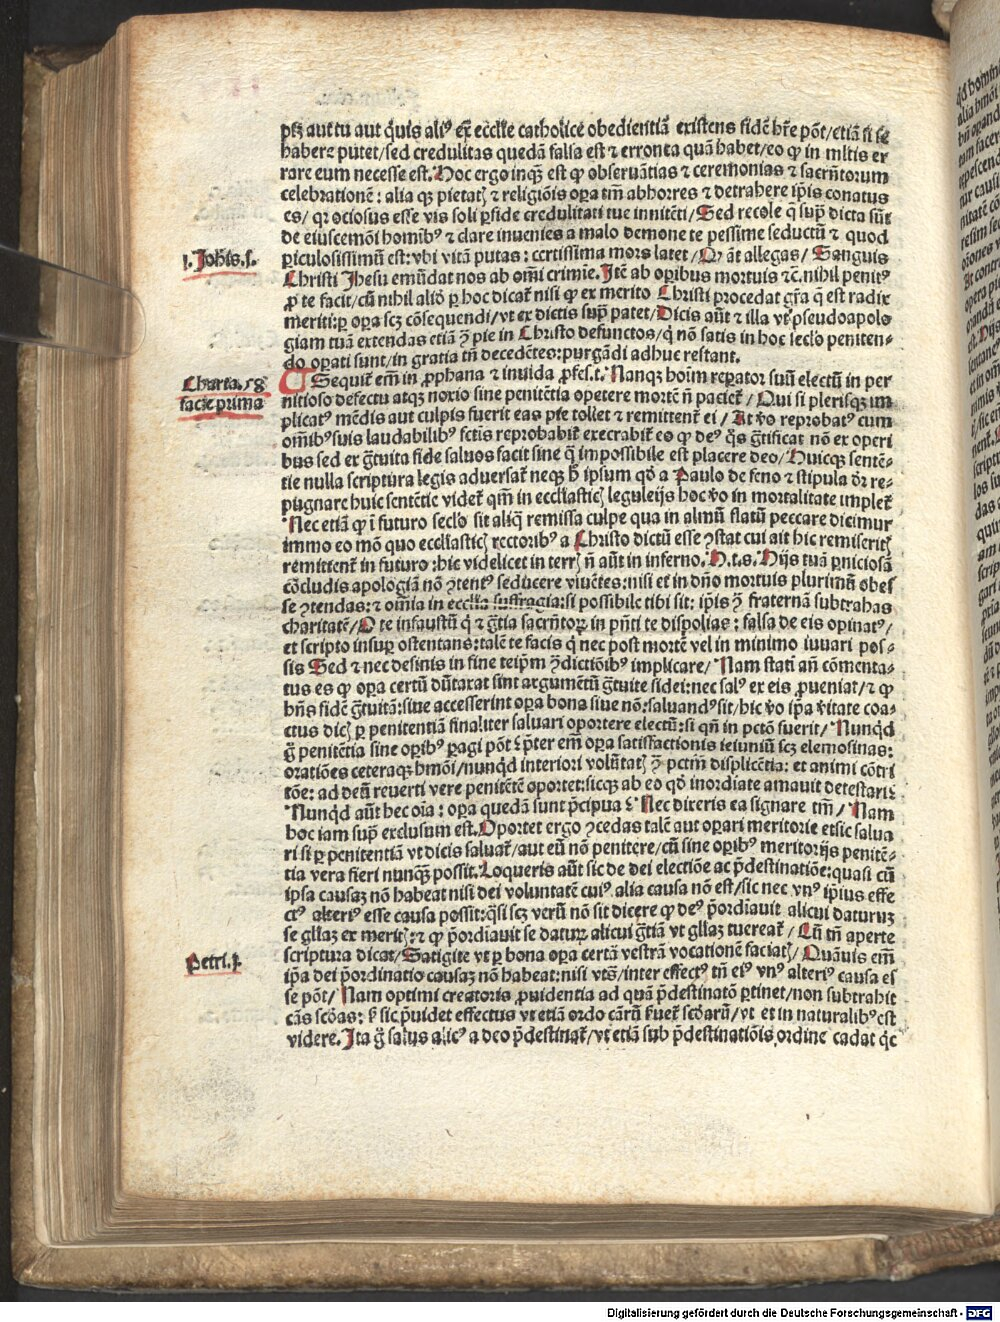 pꝫ aut tu aut q̇uis aliꝰ ex̄ ecclīe catholice obedientiā existens fidē hr̄e pōt/etiā si se
habere putet/sed credulitas quedā falsa est ⁊ erronta quā habet/eo ꝙ in ml̄tis er
rare eum necesse est. Hoc ergo inqꝫ est ꝙ obseruātias ⁊ ceremonias ⁊ sacrn̄torum
celebrationē: alia qꝫ pietatꝭ ⁊ religiōis oꝑa tm̄ abhorres ⁊ detrahere ip̄is conatus
es/ qꝛ ociosus esse vis soli ꝑfide credulitati tue innitēti/ Sed recole q̄ sup̄ dicta sūt
de eiuscemōi homībꝰ ⁊ clare inuenies a malo demone te pessime seductū ⁊ quod
ꝑiculosissimū est: vbi vitā putas: certissima mors latet/ Qꝛ āt allegas/ Sanguis
Christi Jhesu emūdat nos ab om̄i crimīe. Itē ab oꝑibus mortuis ⁊c̄. nihil penitꝰ
ꝓ te facit/ cū nihil aliō ꝑ hoc dicat᷑ nisi ꝙ ex merito Christi procedat gr̄a q̄ est radix
meriti: ꝑ oꝑa scꝫ cōsequendi/vt ex dictis sup̄ patet/ Dicis aūt ⁊ illa vt pseudoapolo
giam tuā extendas etiā ꝯ pie in Christo defunctos/ q̇ nō satis in hoc secl̄o peniten-
do oꝑati sunt/ in gratia tn̄ decedētes: purgādi adhuc restant.
I. Johīs. I.
Charta. 18
facie prima
C Sequit᷑ em̄ in ꝓphana ⁊ inuida ꝓfes.t. Nanqꝫ hoīm reꝑator suū electū in per
nitioso defectu atqꝫ noxio sine penitētia opetere mortē n̄ paciet᷑/ Qui si plerisqꝫ im
plicatꝰ mēdis aut culpis fuerit eas pie tollet ⁊ remittent᷑ ei/ At v̄o reprobatꝰ cum
om̄ibꝰ suis laudabilibꝰ fctīs reprobabit᷑ execrabit᷑ eo ꝙ deꝰ q̇s gr̄tificat nō ex operi
bus sed ex gr̄tuita fide saluos facit sine q̄ impossibile est placere deo/ Huicqꝫ sentē-
tie nulla scriptura legis aduersat᷑ neqꝫ h̄ ipsum qd̄ a Paulo de feno ⁊ stipula dr̄ re-
pugnare huic sentētie videt᷑ qm̄ in eccl̄iasticꝭ leguleijs hoc v̄o in mortalitate implet᷑
Nec etiā ꝙ ī futuro secl̄o sit aliq̄ remissa culpe qua in almū flatū peccare dicimur
immo eo mō quo eccl̄iasticꝭ rectoribꝰ a Christo dictū esse ꝯstat cui ait hic remiseritꝭ
remittent᷑ in futuro: hic videlicet in terrꝭ n̄ aūt in inferno. H.t.s. Hijs tuā ꝑniciosā
cōcludis apologiā nō ꝯtentꝰ seducere viuētes: nisi et in dn̄o mortuis plurimū obes
se ꝯtendas: ⁊ om̄ia in eccl̄ia suffragia: si possibile tibi sit: ip̄is ꝯ fraternā subtrahas
charitatē/ O te infaustū q̇ ⁊ gr̄tia sacrn̄toꝝ in pn̄ti te dispolias: falsa de eis opinatꝰ/
et scripto insuꝑ ostentans: talē te facis q̇ nec post mortē vel in minimo iuuari pos-
sis Sed ⁊ nec desinis in fine teip̄m ꝯdictiōibꝰ implicare/ Nam stati an̄ cōmenta-
tus es ꝙ oꝑa certū dūtaxat sint argumētū gr̄tuite fidei: nec salꝰ ex eis ꝓueniat/ ⁊ ꝙ
hn̄s fidē gr̄tuitā: siue accesserint oꝑa bona siue nō: saluandꝰ sit/ hic v̄o ip̄a v̄itate coa-
ctus dicꝭ ꝑ penitentiā finaliter saluari oportere electū: si qn̄ in pctō fuerit/ Nunqd̄
g̊ penitētia sine oꝑibꝰ ꝑagi pōt? p̄ter em̄ oꝑa satisfactionis ieiuniū scꝫ elemosinas:
oratiōes ceteraqꝫ hmōi/ nunqd̄ interiori volūtatꝭ ꝯ pctm̄ displicētia: et animi cōtri
tōe: ad deū reuerti vere penitētē oportet: sicqꝫ ab eo qd̄ inordiate amauit detestari?
Nunqd̄ aūt hec oīa: oꝑa quedā sunt p̄cipua? Nec dixeris ea signare tm̄/ Nam
hoc iam sup̄ exclusum est. Oportet ergo ꝯcedas talē aut oꝑari meritorie etsic salua
ri si ꝑ penitentiā vt dicis saluat᷑/ aut eū nō penitere/ cū sine oꝑibꝰ meritorijs penitē-
tia vera fieri nunqꝫ possit. Loqueris aūt sic de dei electiōe ac p̄destinatiōe: quasi cū
ipsa causaꝫ nō habeat nisi dei voluntatē cuiꝰ alia causa nō est/ sic nec vnꝰ ip̄ius effe
ctꝰ alteriꝰ esse causa possit: q̄si scꝫ verū nō sit dicere ꝙ deꝰ p̄ordīauit alicui daturuꝫ
se gl̄iaꝫ ex meritꝭ: ⁊ ꝙ p̄ordīauit se daturꝝ alicui gr̄tiā vt gl̄iaꝫ tuereat᷑/ Cū tn̄ aperte
scriptura dicat/ Satigite vt ꝑ bona oꝑa certā vestrā vocationē faciatꝭ/ Quāuis em̄
ip̄a dei p̄ordinatio causaꝫ nō habeat: nisi vtꝫ/ inter effectꝰ tn̄ eiꝰ vnꝰ alteriꝰ causa es
se pōt/ Nam optimi creatoris ꝓuidentia ad quā p̄destinatō ꝑtinet/ non subtrahit
cās scd̄as: ẜ sic p̄uidet effectus vt etiā ordo cārū ẜuet᷑ scd̄arū/ vt et in naturalibꝰ est
videre. Ita g̊ salus alicꝰ a deo p̄destinat᷑/ vt etiā sub p̄destinatiōis ordine cadat q̇c
Petri. I.
Digitalisierung gefördert durch die Deutsche Forschungsgemeinschaft - DFG